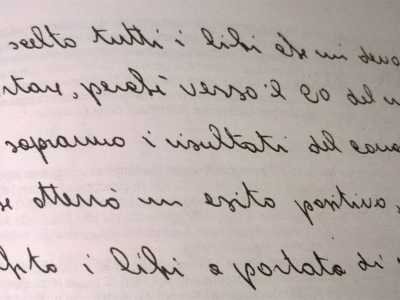 scelto tutti i libri che mi devo
perché verso il 20 del
sapranno i risultati del
se otterrò un esito positivo,
i libri a portata di